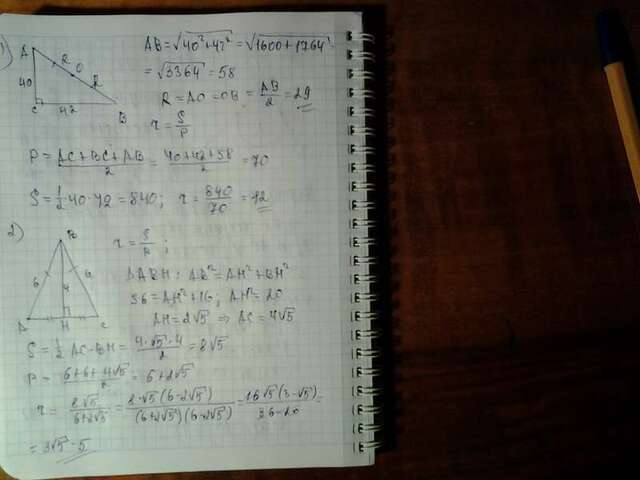 1)
A
R
O
40
R
C
42
B
AB = √40²+42² = √1600+1764 =
= √3364 = 58
R = AO = OB = AB/2 = 29
r = S/P
P = AC+BC+AB/2 = 40+42+58/2 = 70
S = 1/2 40·42 = 840; r = 840/70 = 12
2)
B
6
6
4
A
H
C
r = S/P;
ΔABH: AB² = AH²+BH²
36 = AH²+16; AH² = 20
AH = 2√5 ⇒ AC = 4√5
S = 1/2 AC·BH = 4·√5·4/2 = 8√5
P = 6+6+4√5/2 = 6+2√5
r = 8√5/6+2√5 = 8·√5(6-2√5)/(6+2√5)(6-2√5) = 16√5(3-√5)/36-20 =
= 3√5-5